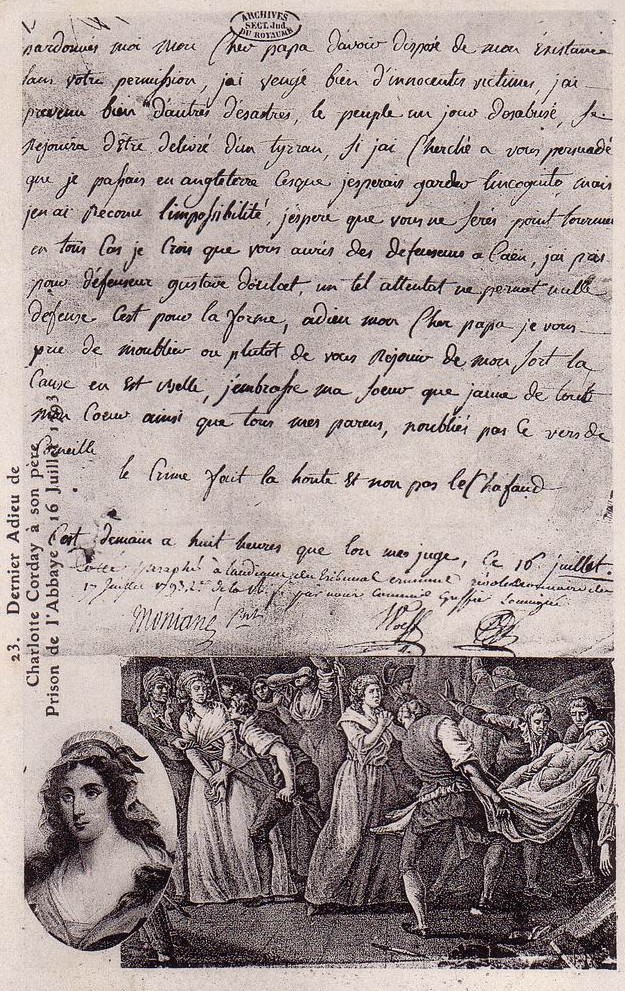 ARCHIVES
SECT. Jud.
DU ROYAUME
pardonnes moi mon Cher papa davoir disposé de mon Existance
sans votre permission, jai vengé bien d'innocentes victimes, jai
prevenu bien d'autres désastres, le peuple un jour desabusé, se
Rejouira d'être délivré dun tyrran, Si jai Cherché a vous persuadé
que je passais en angleterre Cesque jesperais garder lincognito mais
jen ai Reconu limpossibilité, jéspere que vous ne serés point tourmenté
en tous Cas je Crois que vous auriés des défenseurs a Caën, jai pris
pour défenseur gustave doulcet, un tel attentat ne permet nulle
défense Cest pour la forme, adieu mon Cher papa je vous
prie de moublier ou plutôt de vous Rejouir de mon Sort la
Cause en Est belle, jembrasse ma soeur que jaime de tout
mon Coeur ainsi que tous mes parens, noubliés pas Ce vers de
Corneille
le Crime fait la honte Et non pas lechafaud
Cest demain a huit heures que lon me juge, Ce 16 juillet.
du tribunal criminel révolutionnaire
17 juillet 1793 commis Greffier
Montané Pnt
Wolff
23. Dernier Adieu de
Charlotte Corday à son père
Prison de l'Abbaye 16 Juillet 1793